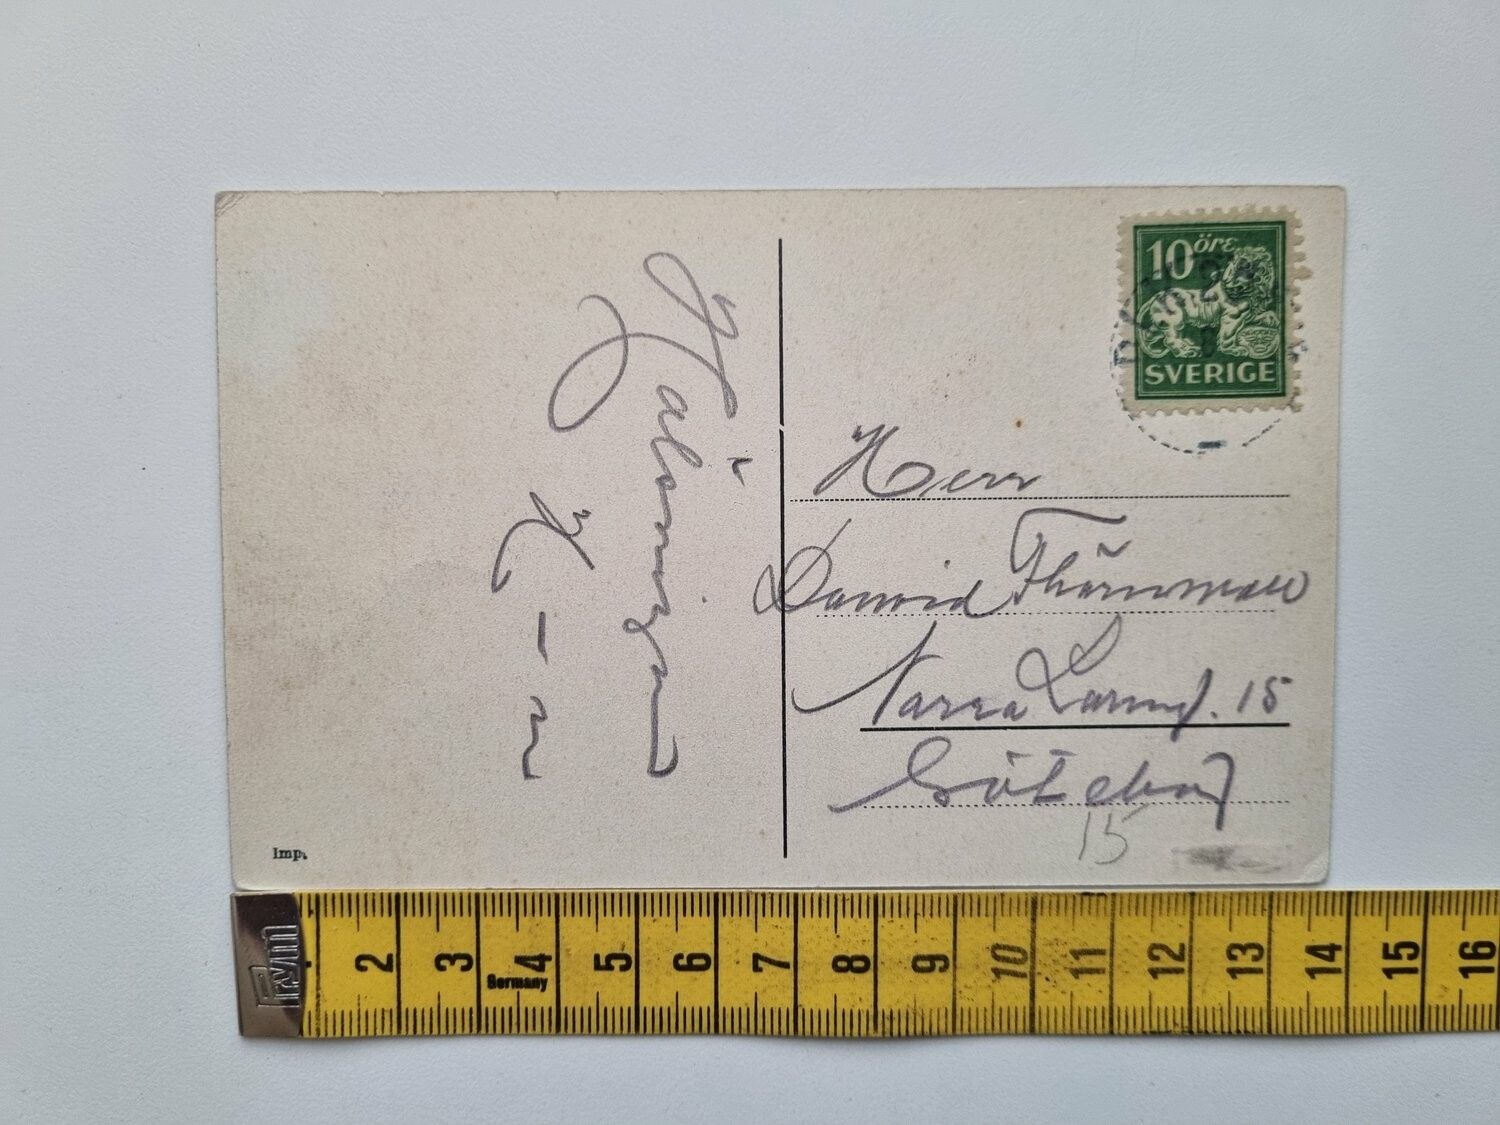 Hälsningar
K-n
10 öre
SVERIGE
Herr
Thörnman
Norra Larmg. 15
Göteborg
15
Imp.
Prym
2 3 4 5 6 7 8 9 10 11 12 13 14 15 16
Germany